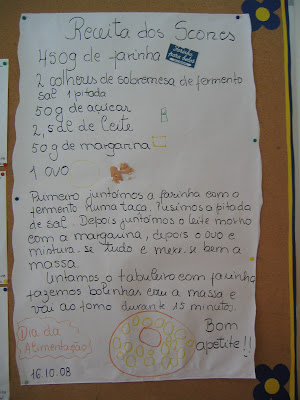 Receita dos Scones
450g de farinha
2 colheres de sobremesa de fermento
sal 1 pitada
50g de açúcar
2,5 dl de leite
50g de margarina
1 ovo
Primeiro juntámos a farinha com o
fermento numa taça. Pusimos a pitada
de sal. Depois juntámos o leite morno
com a margarina, depois o ovo e
mistura-se tudo e mexe-se bem a
massa.
Untamos o tabuleiro com farinha
fazemos bolinhas com a massa e
vai ao forno durante 15 minutos.
Dia da
Alimentação!
Bom
apetite!!
16.10.08